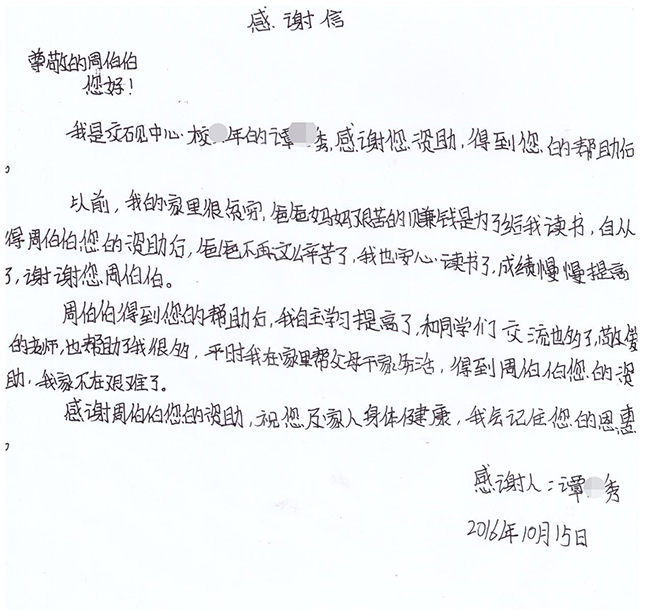 感谢信
尊敬的周伯伯
您好!
我是交石见中心校年的谭秀,感谢您资助,得到您的帮助后
。
以前,我的家里很贫穷,爸爸妈妈艰苦的赚钱是为了给我读书,自从
得周伯伯您的资助后,爸爸不再这么辛苦了,我也安心读书了,成绩慢慢提高
了,谢谢您周伯伯。
周伯伯得到您的帮助后,我自主学习提高了,和同学们交流也多了,敬爱
的老师,也帮助了我很多,平时我在家里帮父母干家务活,得到周伯伯您的资
助,我家不在艰难了。
感谢周伯伯您的资助,祝您及家人身体健康,我会记住您的恩惠
。
感谢人:谭秀
2016年10月15日